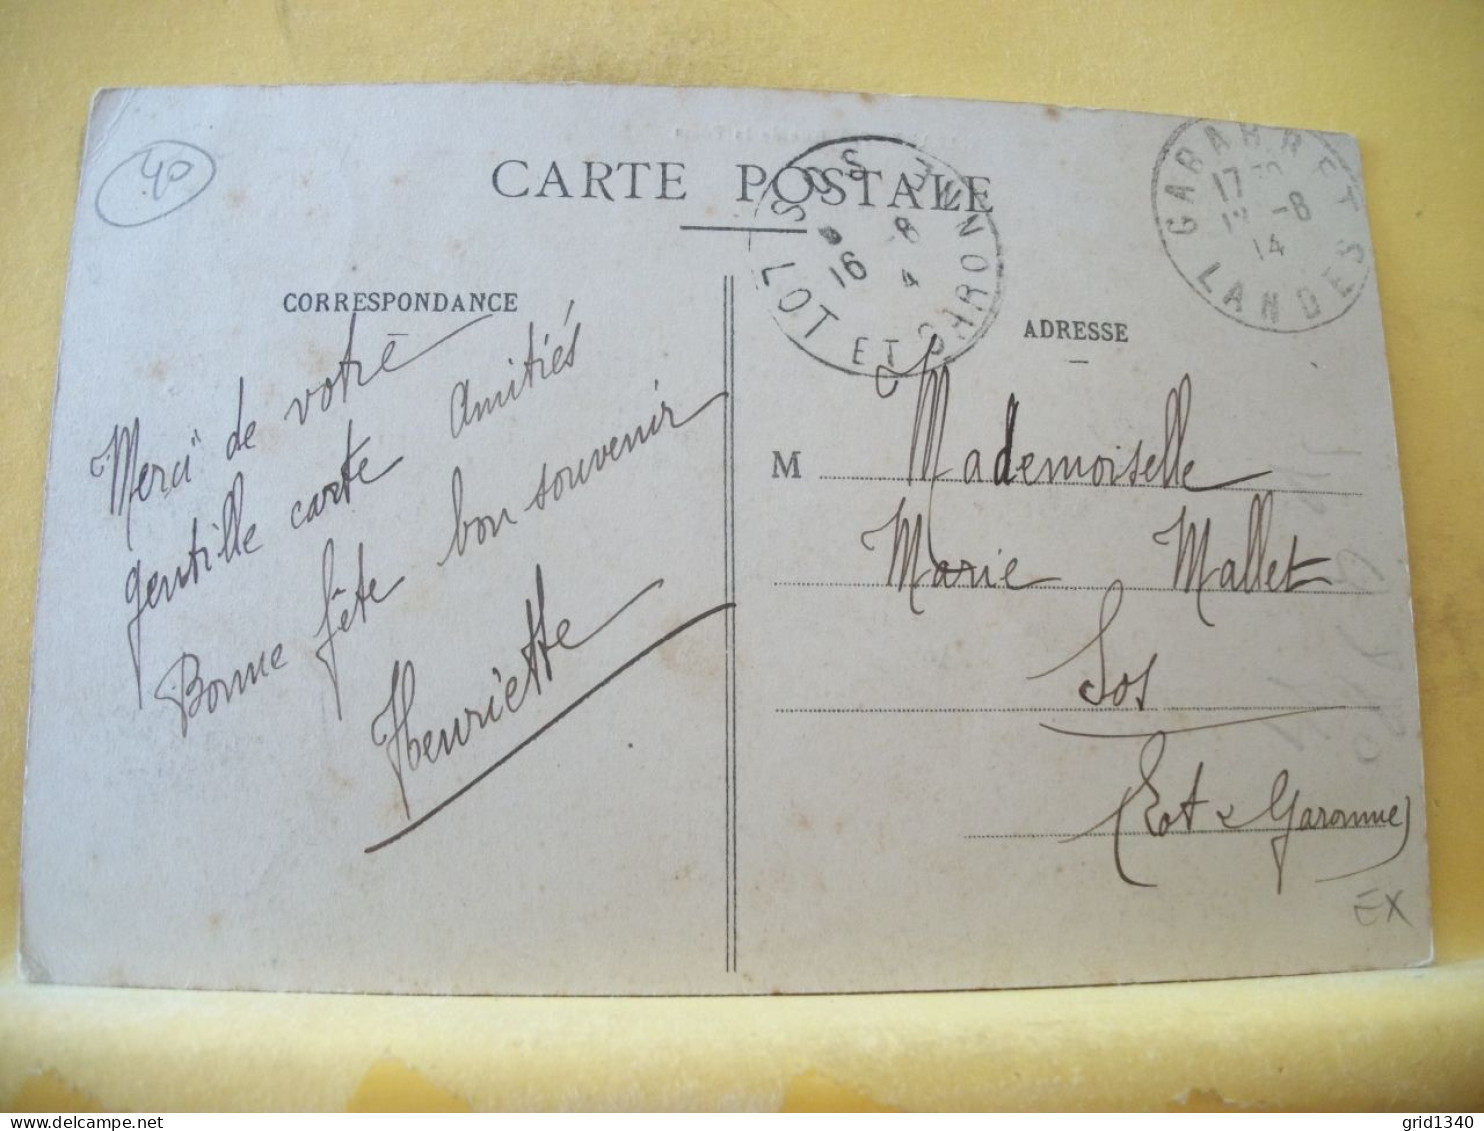 40
CARTE POSTALE
SOS
8
16 4
LOT ET GARONNE
GABARRET
17
-8
14
LANDES
CORRESPONDANCE
Merci de votre
gentille carte Amitiés
Bonne fête bon souvenir
Henriette
ADRESSE
M Mademoiselle
Marie Mallet
Sos
(Lot & Garonne)
EX
grid1340